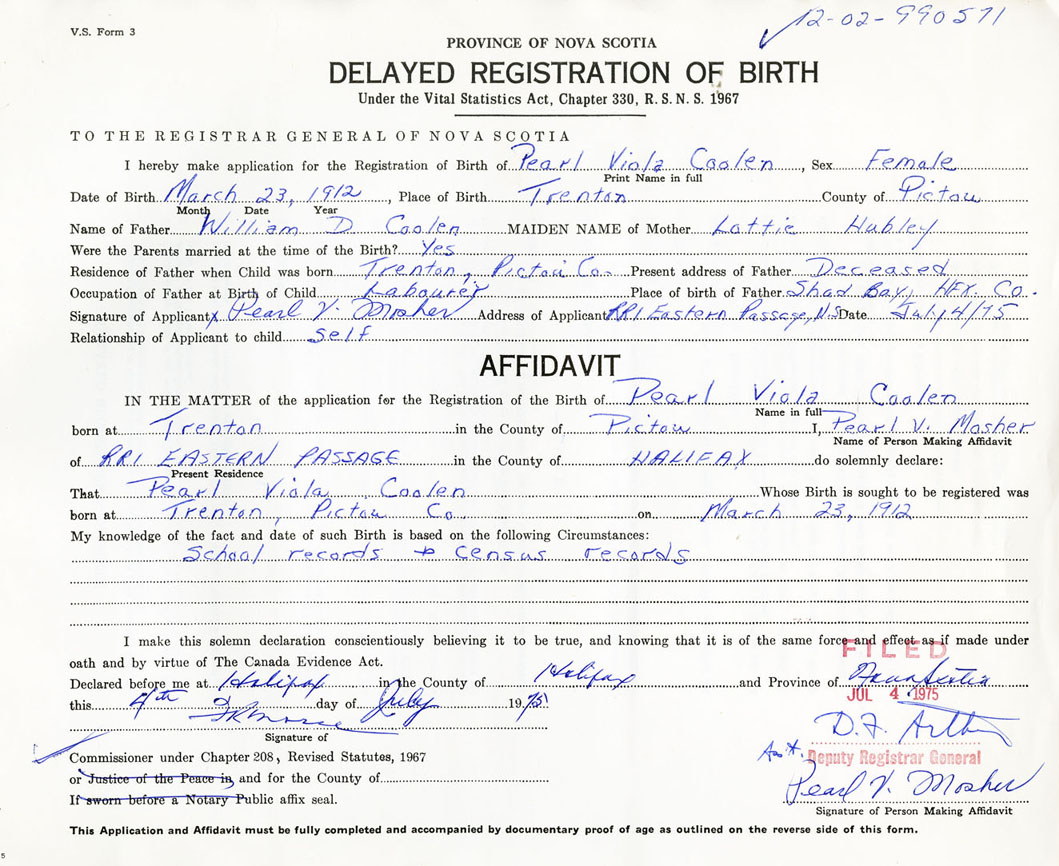 V.S. Form 3
12-02-990571
PROVINCE OF NOVA SCOTIA
DELAYED REGISTRATION OF BIRTH
Under the Vital Statistics Act, Chapter 330, R. S. N. S. 1967
TO THE REGISTRAR GENERAL OF NOVA SCOTIA
I hereby make application for the Registration of Birth of Pearl Viola Coolen, Sex Female
Print Name in full
Date of Birth March 23, 1912, Place of Birth Trenton County of Pictou
Month Date Year
Name of Father William D. Coolen MAIDEN NAME of Mother Lottie Hubley
Were the Parents married at the time of the Birth? Yes
Residence of Father when Child was born Trenton, Pictou Co. Present address of Father Deceased
Occupation of Father at Birth of Child Labourer Place of birth of Father Shad Bay, HFX. Co.
Signature of Applicant x Pearl V. Mosher Address of Applicant RR1 Eastern Passage, N.S Date July 4/75
Relationship of Applicant to child self
AFFIDAVIT
IN THE MATTER of the application for the Registration of the Birth of Pearl Viola Coolen
Name in full
born at Trenton in the County of Pictou I, Pearl V. Mosher
Name of Person Making Affidavit
of RR1 EASTERN PASSAGE in the County of HALIFAX do solemnly declare:
Present Residence
That Pearl Viola Coolen Whose Birth is sought to be registered was
born at Trenton, Pictou Co on March 23, 1912
My knowledge of the fact and date of such Birth is based on the following Circumstances:
School records + Census records
I make this solemn declaration conscientiously believing it to be true, and knowing that it is of the same force and effect as if made under
oath and by virtue of The Canada Evidence Act.
FILED
Declared before me at Halifax in the County of Halifax and Province of Nova Scotia
JUL 4 1975
this 4th day of July 1975
Signature of
D.F. 
Commissioner under Chapter 208, Revised Statutes, 1967
Ass't. Deputy Registrar General
or Justice of the Peace in, and for the County of
If sworn before a Notary Public affix seal.
Pearl V. Mosher
Signature of Person Making Affidavit
This Application and Affidavit must be fully completed and accompanied by documentary proof of age as outlined on the reverse side of this form.
5